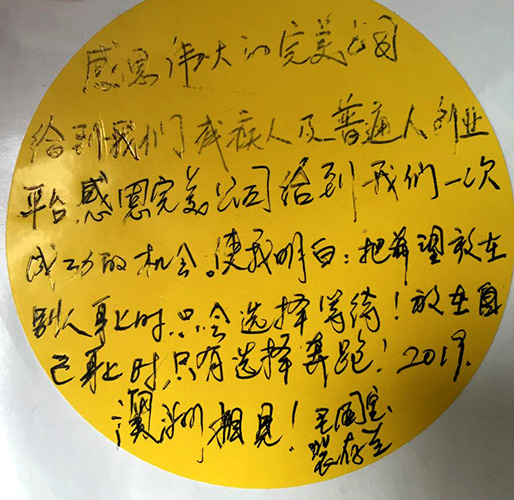 感恩伟大的完美公司
给到我们残疾人及普通人创业
平台感恩完美公司给到我们一次
成功的机会。使我明白:把希望放在
别人身上时.只会选择等待!放在自
己身上时,只有选择奔跑!2019.
澳洲相见!